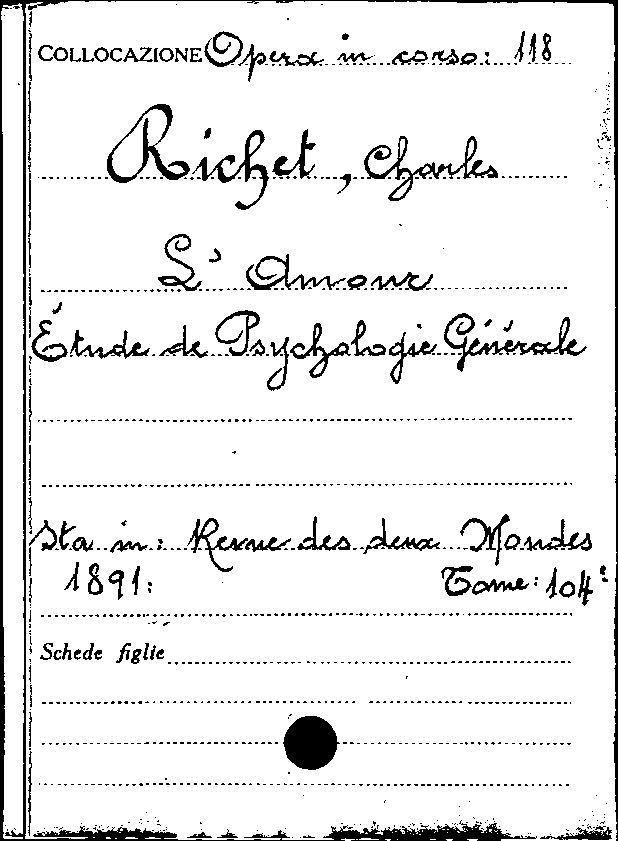 COLLOCAZIONE Opera in corso: 118
Richet, Charles
L'Amour
Étude de Psychologie Générale
Sta in: Revue des deux Mondes
1891: Tome: 104º
Schede figlie